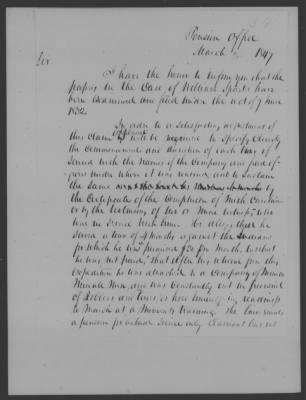 Pension Office
March 1847
Sir
I have the honor to inform you that the
papers in the Case of William Sparks have
been examined and filed under the act of 7 June
1832.
In order to a satisfactory adjustment of
this claim it will be required to specify clearly
the Commencement and duration of each tour of
Service with the names of the Company and field of-
ficers under whom it was rendered and to sustain
the same
by
the Certificate of the Comptroller of North Carolina
or by the testimony of two or more witnesses who
was in Service with him. He alleges that he
Served a tour of 4 months against the Indians
for which he was promised $20 per month but
he was not paid, that after his return from this
expedition he was attached to a Company of Minute
Men, and was constantly out in pursuit
of Robbers and tories or held himself in readiness
to March at a moments warning. The law grants
a pension for actual Service only. Claimant has not